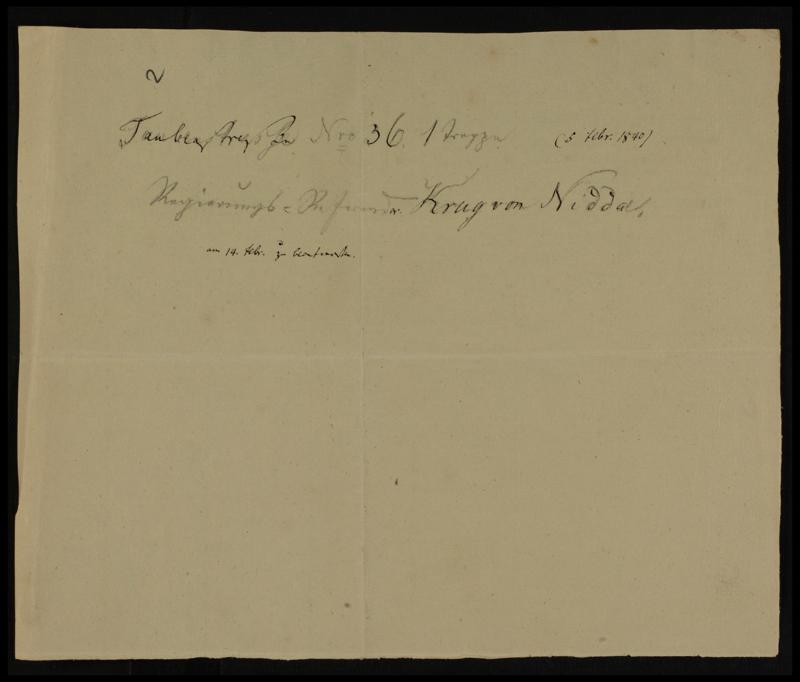 2
Taubenstraße Nro 36. 1 Treppe (5 Febr. 1840)
Regierungs-Referendr. Krug von Nidda,
am 14. Febr. zu beantworten.